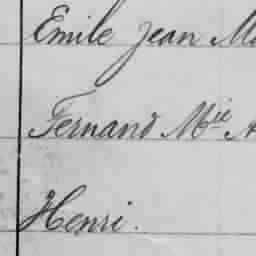 Emile Jean
Fernand Mie
Henri.